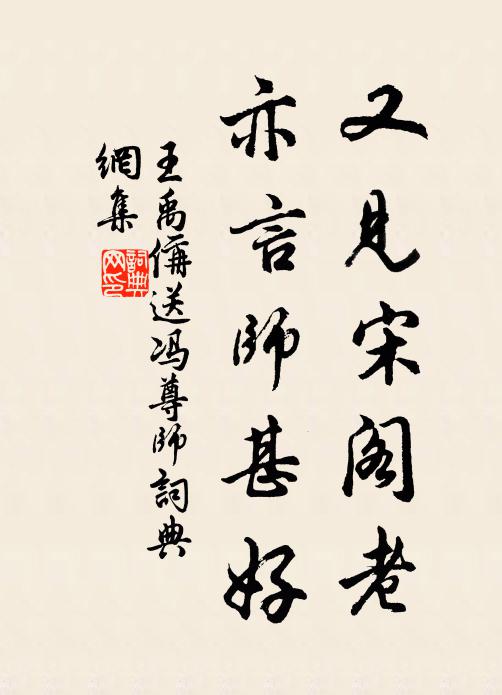 又見宋阁老
亦言師甚好
王禹偁送冯尊師詞典
網集
詞典
网印